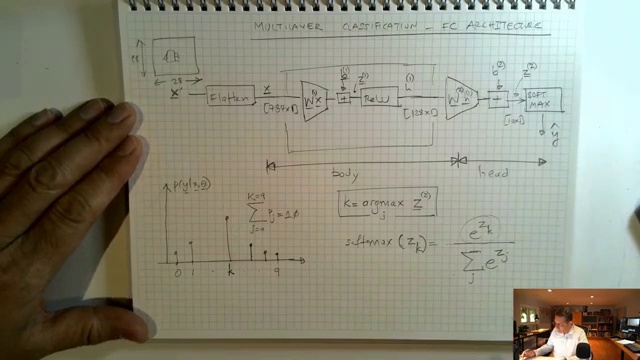 MULTILAYER CLASSIFICATION - FC ARCHITECTURE
28
28
x
Flatten
x
[784x1]
W⁽¹⁾x
b⁽¹⁾
+
z⁽¹⁾
ReLU
h⁽¹⁾
[128x1]
W⁽²⁾h⁽¹⁾
b⁽²⁾
+
z⁽²⁾
[10x1]
SOFT
MAX
ŷ
body
head
P(y|x,θ)
K=9
∑ŷⱼ=1.0
j=0
0 1 .. k 9
K = argmax z⁽²⁾
j
softmax (z_k) = e^{z_k}
∑ e^{z_j}
j